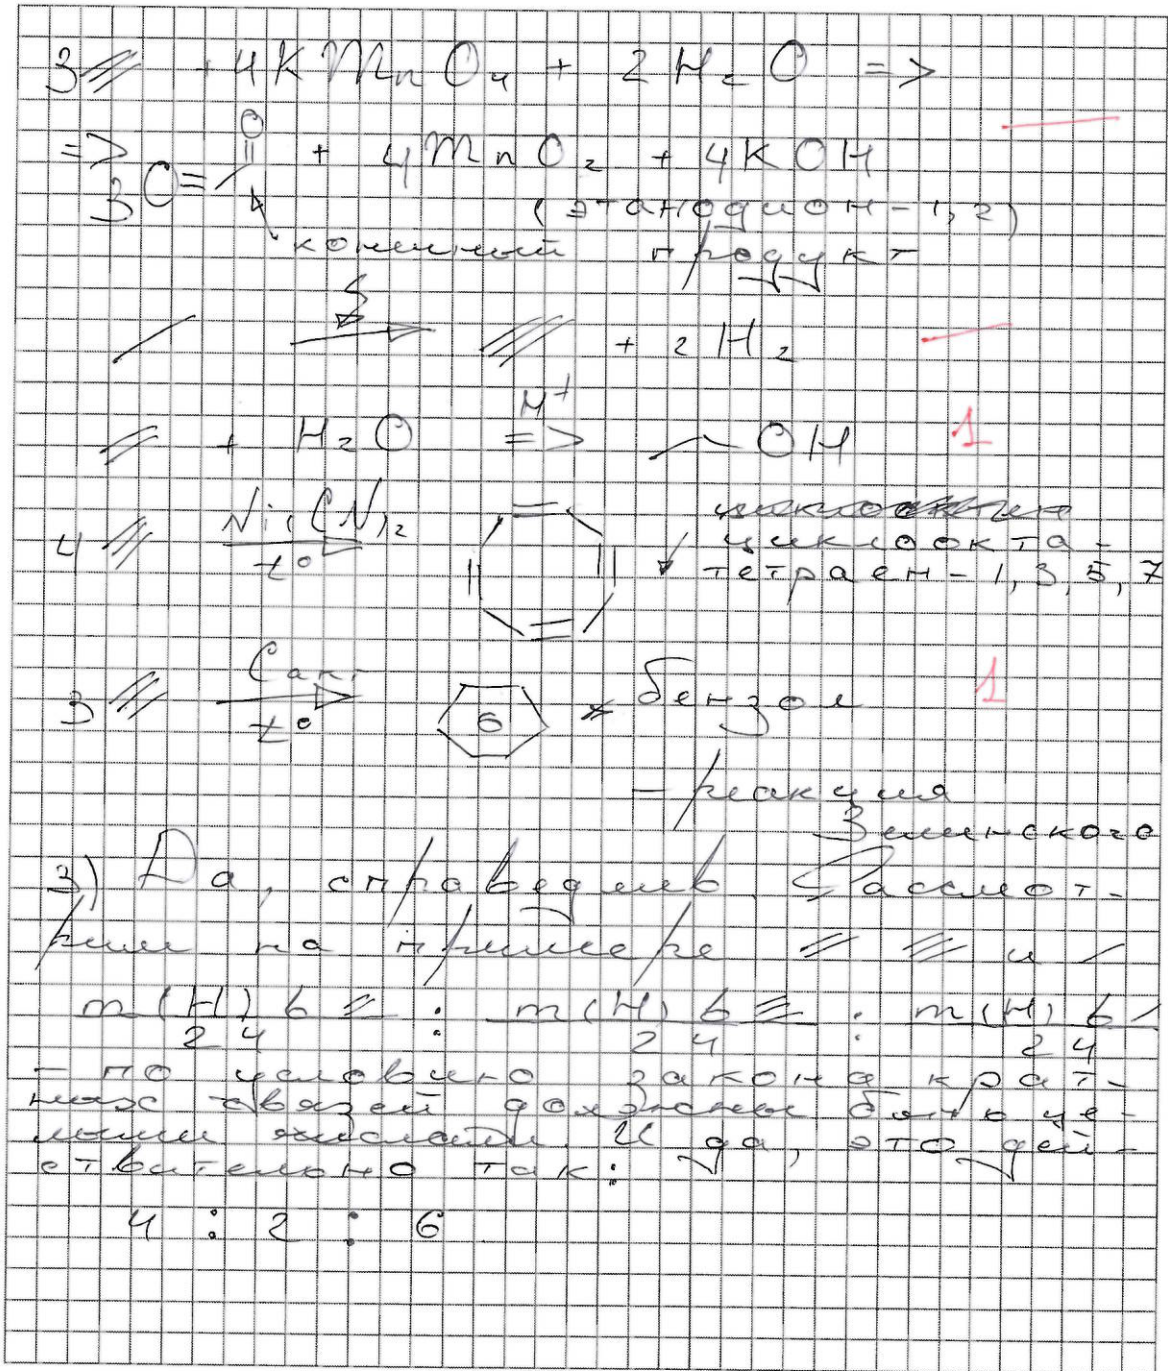 3 + 4KMnO₄ + 2H₂O =>
=> 3 O= O + 4MnO₂ + 4KOH
(этанодион-1,2)
конечный продукт
+ 2H₂
+ H₂O H⁺ => OH 1
4 Ni(CN)₂ t° циклоокта-
тетраен-1,3,5,7
3 Cакт t° 6 бензол 1
- реакция
Зелинского
3) Да, справедлив. Рассмот-
рим на примере и
m(H) в : m(H) в : m(H) в
24 24 24
- по условию закона крат-
ных связей должны быть це-
лыми числами. И да, это дей-
ствительно так:
4 : 2 : 6